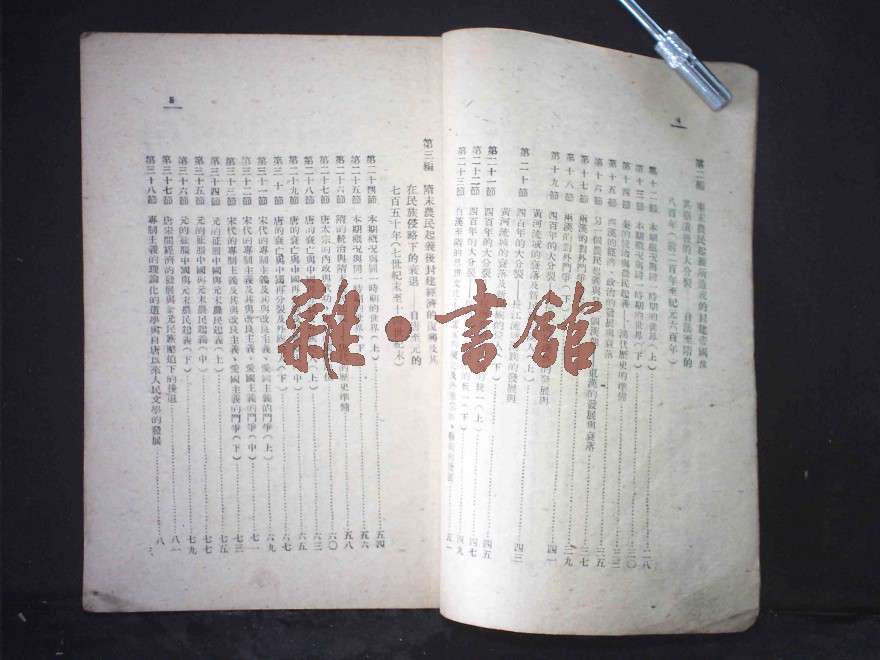 4
第二編 秦末農民起義所造成的封建帝國及
其崩潰後的大分裂——自漢至隋的
八百年(前二百年至紀元六百年)
第十二節 本期概況與同一時期的世界(上)……二八
第十三節 本期概況與同一時期的世界(下)……三〇
第十四節 秦的統治與農民起義——漢代歷史的準備
第十五節 西漢的經濟、政治的發展與衰落
第十六節 另一個農民起義與另一個漢朝——東漢的發展與衰落……三五
第十七節 兩漢的對外鬥爭(上)……三七
第十八節 兩漢的對外鬥爭(下)……三九
第十九節 四百年的大分裂——
黃河流域的衰落及
第二十節 四百年的大分裂——長江流域
黃河流域的衰落
第二十一節 四百年的大分裂
第二十二節 四百年的大分裂
第二十三節 自漢至隋的思想文化
5
第三編 隋末農民起義後封建經濟的復興及其
在民族侵略下的衰退——自唐至元的
七百五十年(七世紀末至十四世紀末)
第二十四節 本期概況與同一時期的世界(上)……五四
第二十五節 本期概況與同一時期的世界……五六
第二十六節 隋的統治與隋末……的歷史準備……五八
第二十七節 唐太宗的內政與武功……六〇
第二十八節 唐的衰亡與中國……(上)……六三
第二十九節 唐的衰亡與中國……六五
第三十節 唐的衰亡與中國再分裂及外族……(下)……六七
第三十一節 宋代的專制主義及其與改良主義、愛國主義的鬥爭(上)……六九
第三十二節 宋代的專制主義及其與改良主義、愛國主義的鬥爭(中)……七一
第三十三節 宋代的專制主義及其與改良主義、愛國主義的鬥爭(下)……七三
第三十四節 元的征服中國與元末農民起義(上)……七五
第三十五節 元的征服中國與元末農民起義(中)……七七
第三十六節 元的征服中國與元末農民起義(下)……七九
第三十七節 唐宋間經濟的發展與金元民族壓迫下的後退……八一
第三十八節 專制主義的理論化的道學與自唐以來人民文學的發展……八
雜·書館